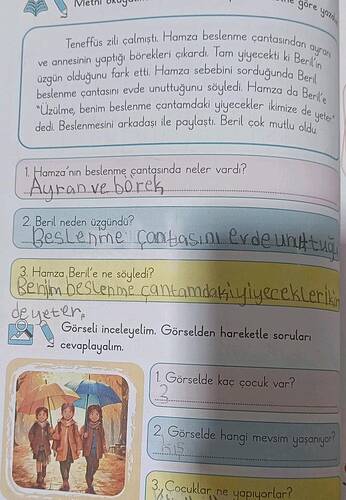 Metni okuyalım
göre yazalım
Teneffüs zili çalmıştı. Hamza beslenme çantasından ayranı
ve annesinin yaptığı börekleri çıkardı. Tam yiyecekti ki Beril'in
üzgün olduğunu fark etti. Hamza sebebini sorduğunda Beril
beslenme çantasını evde unuttuğunu söyledi. Hamza da Beril'e
"Üzülme, benim beslenme çantamdaki yiyecekler ikimize de yeter"
dedi. Beslenmesini arkadaşı ile paylaştı. Beril çok mutlu oldu.
1. Hamza'nın beslenme çantasında neler vardı?
Ayran ve börek
2. Beril neden üzgündü?
Beslenme çantasını evde unuttuğu
3. Hamza Beril'e ne söyledi?
Benim beslenme çantamdaki yiyecekler ikim
de yeter.
Görseli inceleyelim. Görselden hareketle soruları
cevaplayalım.
1. Görselde kaç çocuk var?
3
2. Görselde hangi mevsim yaşanıyor?
3. Çocuklar ne yapıyorlar?